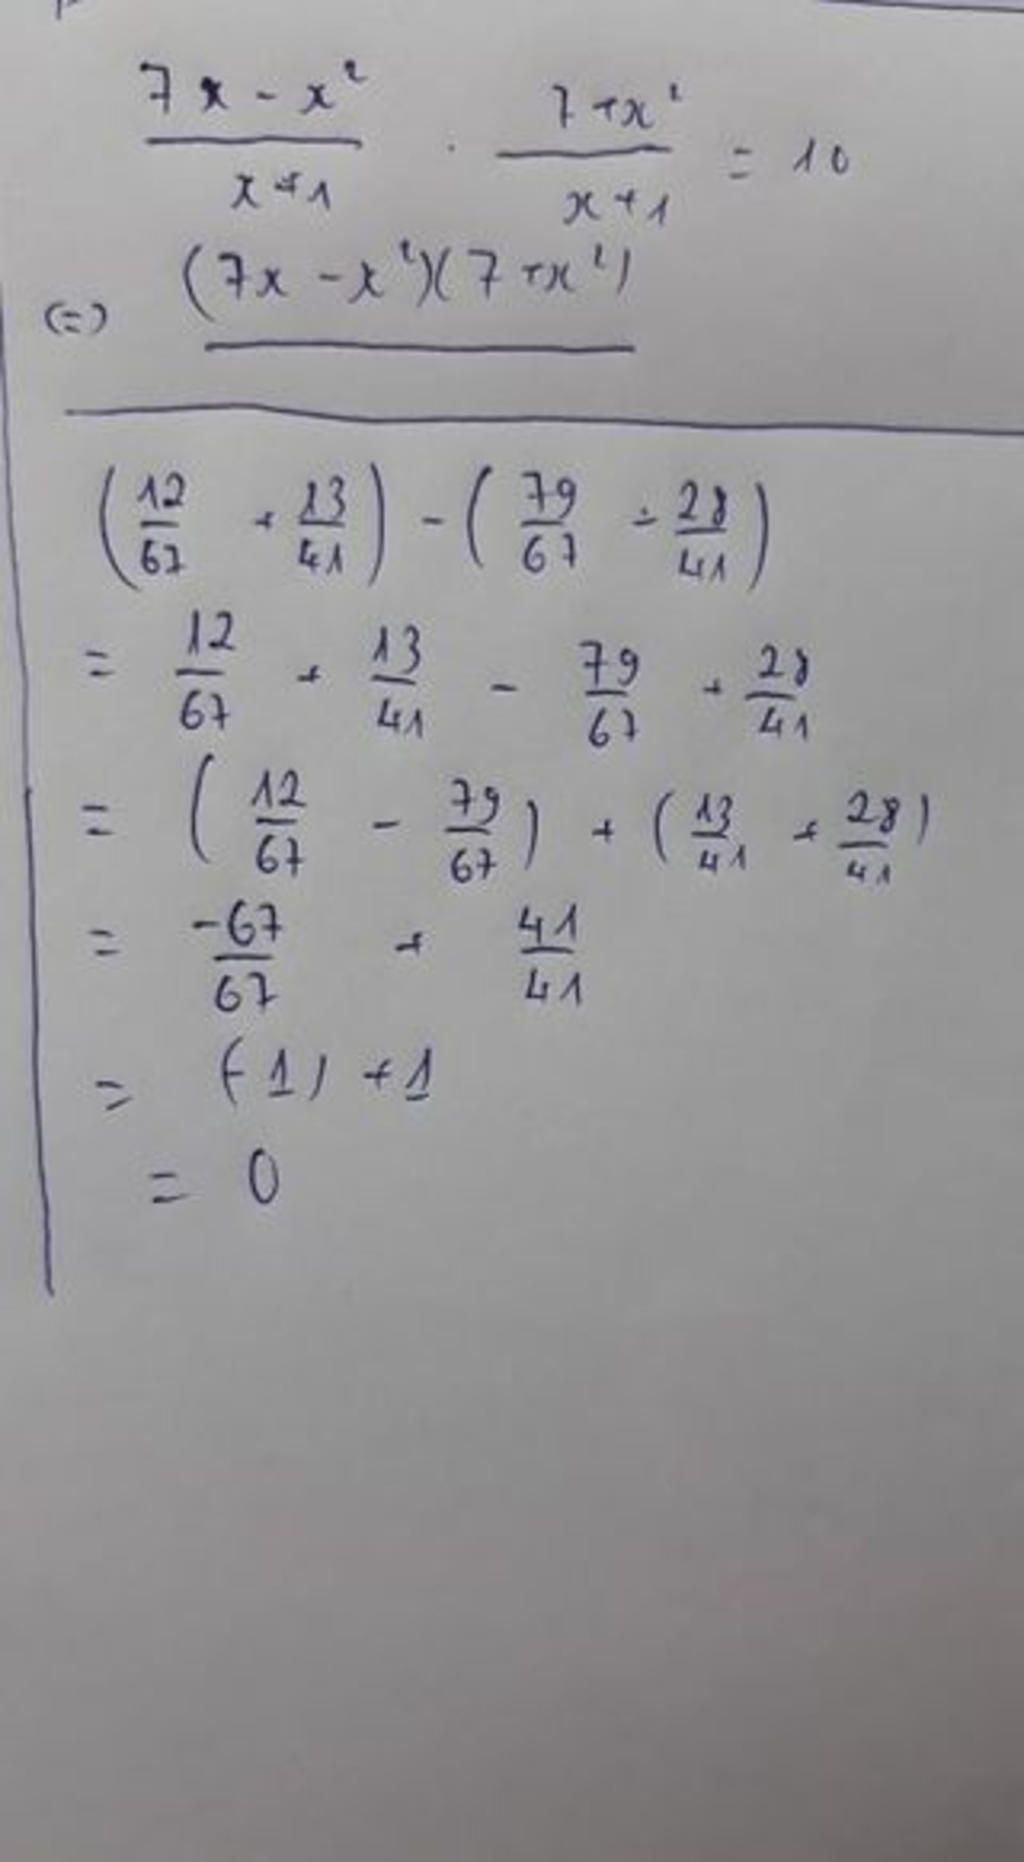 (7x - x²)/(x+1) · (7+x²)/(x+1) = 10
(=) (7x - x²)(7+x²)
(12/67 + 13/41) - (79/67 - 28/41)
= 12/67 + 13/41 - 79/67 + 28/41
= (12/67 - 79/67) + (13/41 + 28/41)
= -67/67 + 41/41
= (-1) + 1
= 0